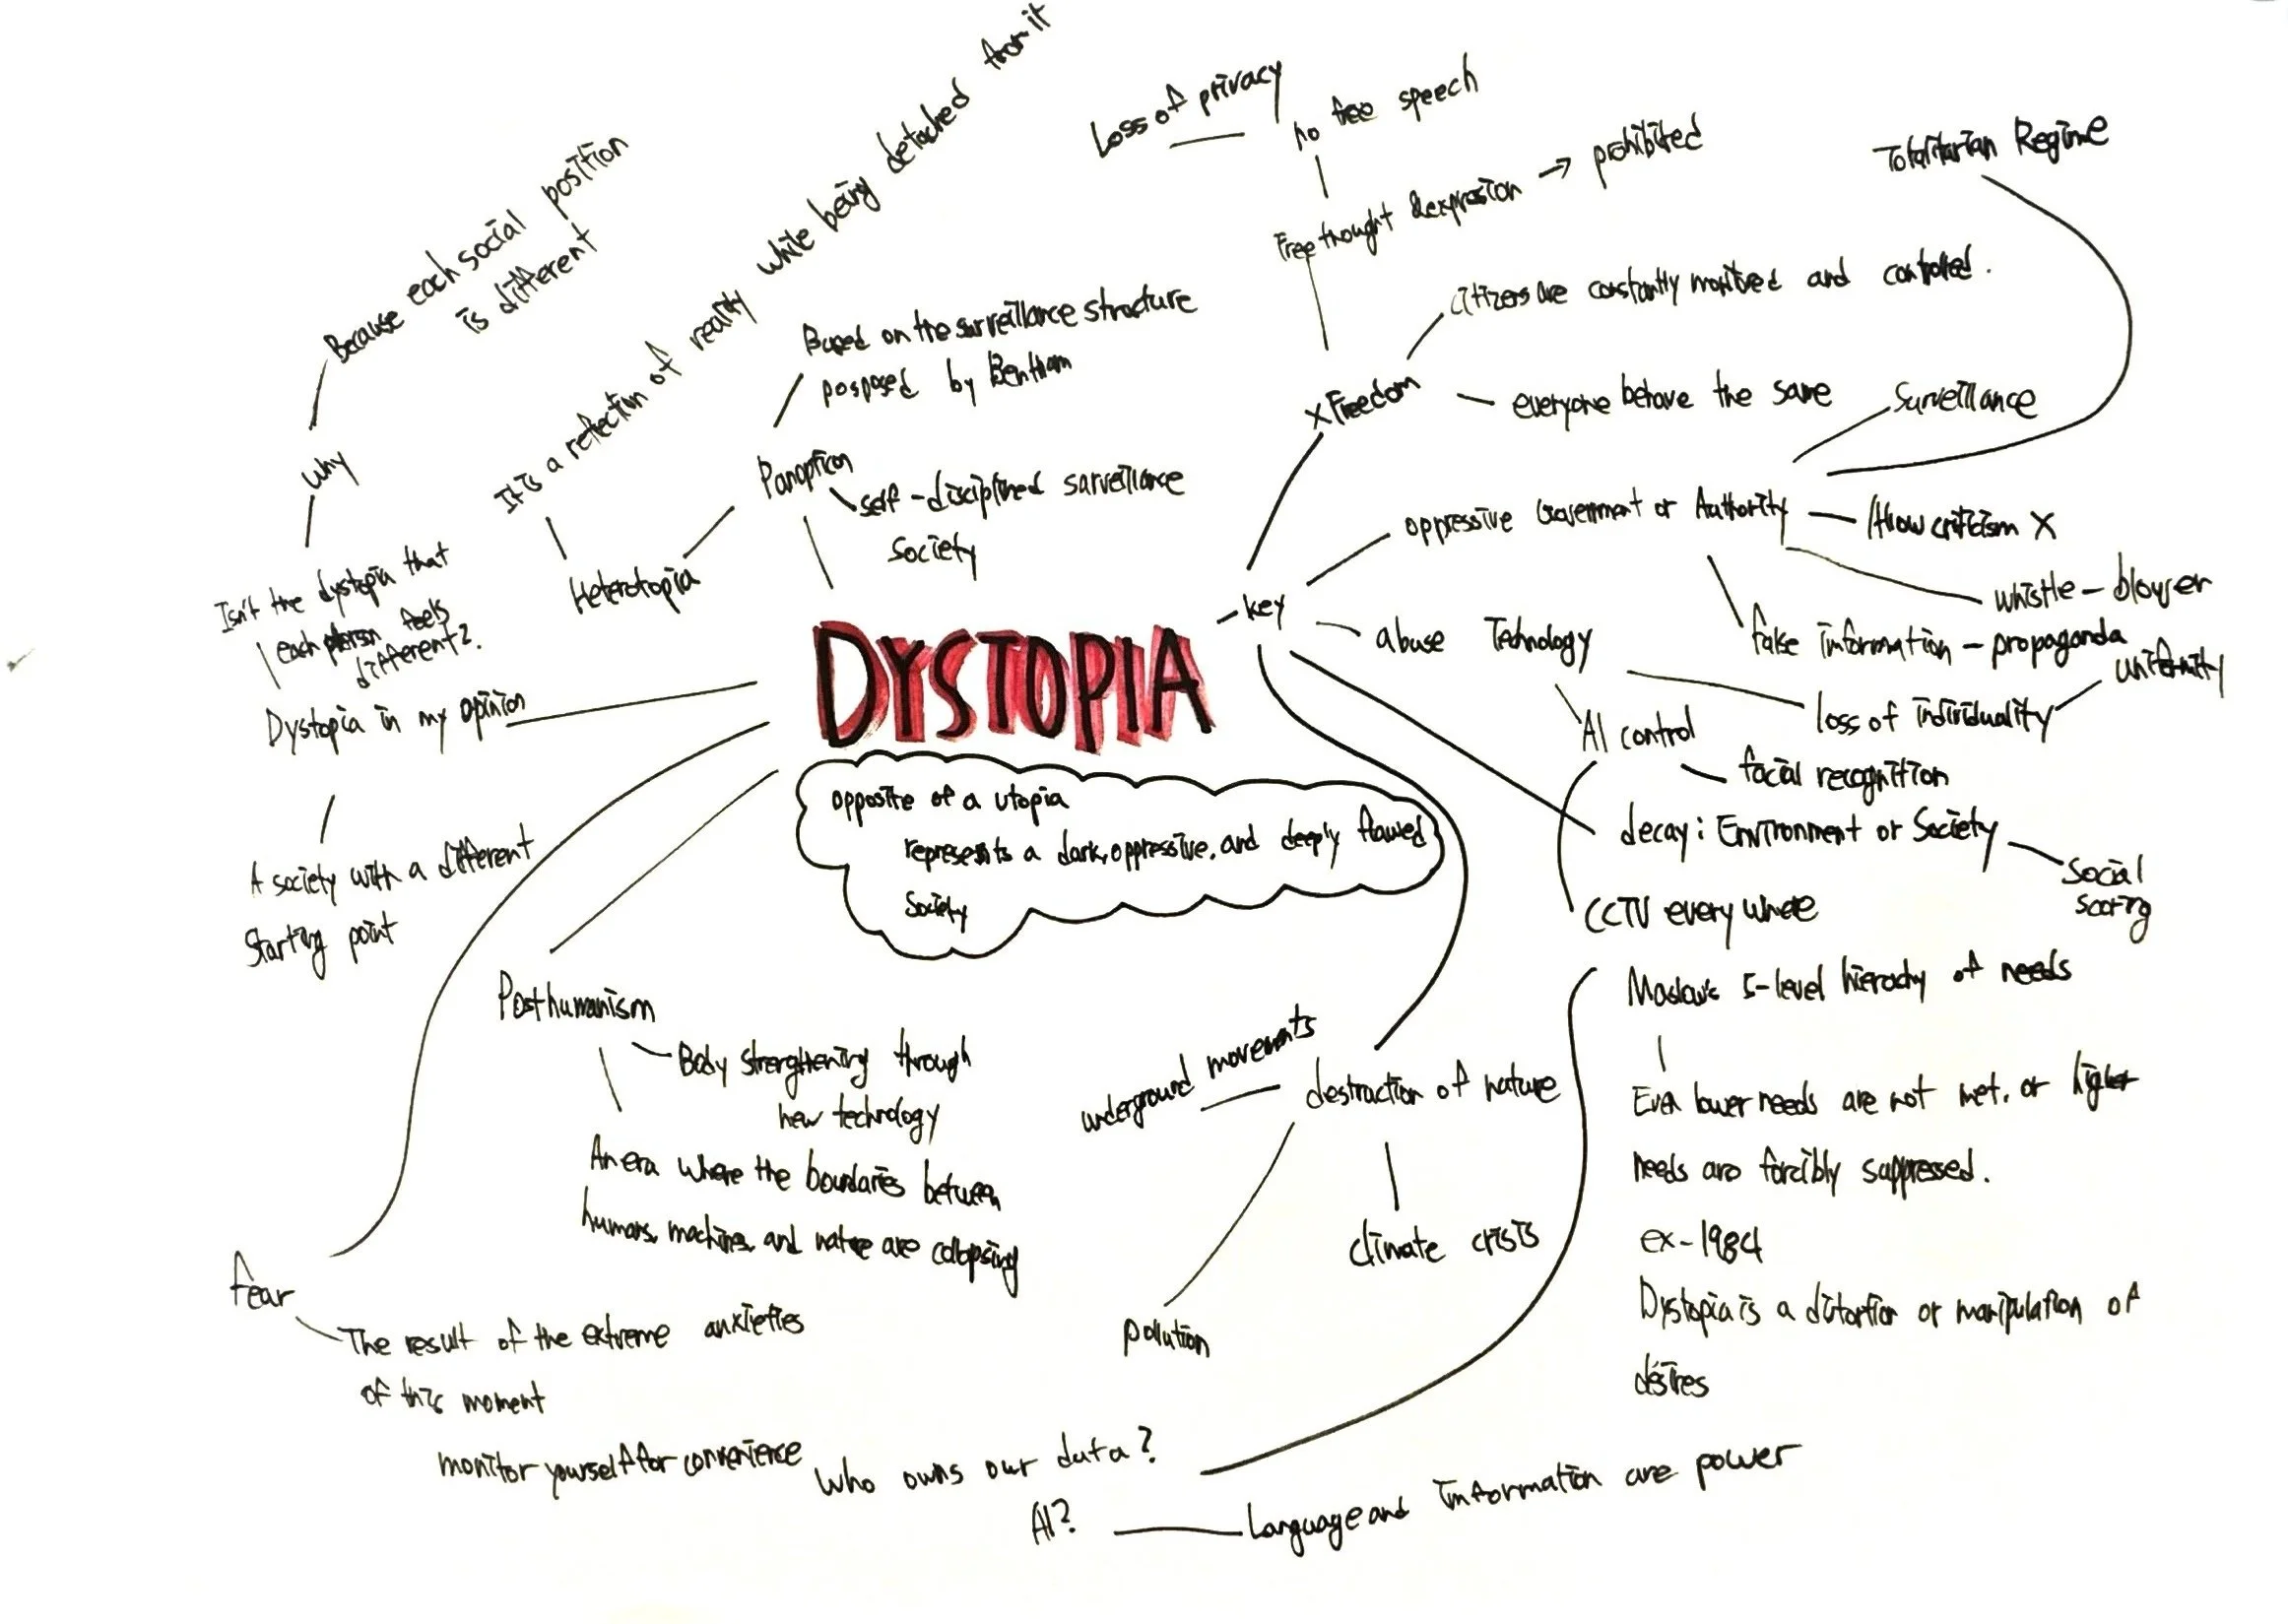 Because each social position
is different
Why
Isn't the dystopia that
each person feels
different?
Dystopia in my opinion
A society with a different
starting point
It is a reflection of reality while being detached from it
Heterotopia
Based on the surveillance structure
posposed by Bentham
Panopticon
self-disciplined sarveillance
society
Loss of privacy
no free speech
Free thought & expression → prohibited
citizens are constantly monitored and controlled.
x Freedom
everyone behave the same
Totalitarian Regime
Surveillance
oppressive Government or Authority
Allow criticism X
whistle-blower
false information - propaganda
key
abuse Technology
uniformity
loss of individuality
AI control
facial recognition
decay: Environment or Society
Social
scoring
CCTV every where
DYSTOPIA
opposite of a utopia
represents a dark, oppressive, and deeply flawed
society
Posthumanism
Body strengthening through
new technology
An era where the boundaries between
humans, machines, and nature are collapsing
underground movements
destraction of nature
climate crisis
pollution
Maslow's 5-level hierachy of needs
Even lower needs are not met, or higher
needs are forcibly suppressed.
ex-1984
Dystopia is a distortion or manipulation of
desires
fear
The result of the extreme anxieties
of this moment
monitor yourself for convenience
Who owns our data?
AI?
Language and Information are power